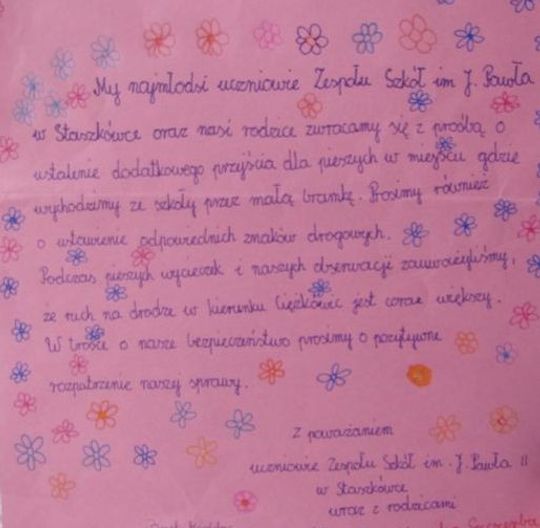 My najmłodsi uczniowie Zespołu Szkół im J. Pawła
w Staszkówce oraz nasi rodzice zwracamy się z prośbą o
ustalenie dodatkowego przejścia dla pieszych w miejscu gdzie
wychodzimy ze szkoły przez małą bramkę. Prosimy również
o ustawienie odpowiednich znaków drogowych.
Podczas pieszych wycieczek i naszych obserwacji zauważyliśmy,
że ruch na drodze w kierunku Ciężkowic jest coraz większy.
W trosce o nasze bezpieczeństwo prosimy o pozytywne
rozpatrzenie naszej sprawy.
Z poważaniem
uczniowie Zespołu Szkół im. J. Pawła II
w Staszkówce
wraz z rodzicami